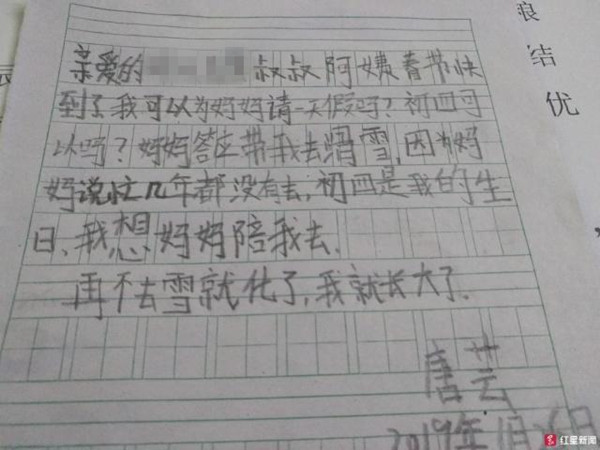 亲爱的 叔叔阿姨春节快
到了我可以为妈妈请一天假吗？初四可
以吗？妈妈答应带我去滑雪,因为妈
妈说忙几年都没有去,初四是我的生
日、我想妈妈陪我去.
再不去雪就化了,我就长大了.
唐芸
2019年1月26日
结
优
红星新闻